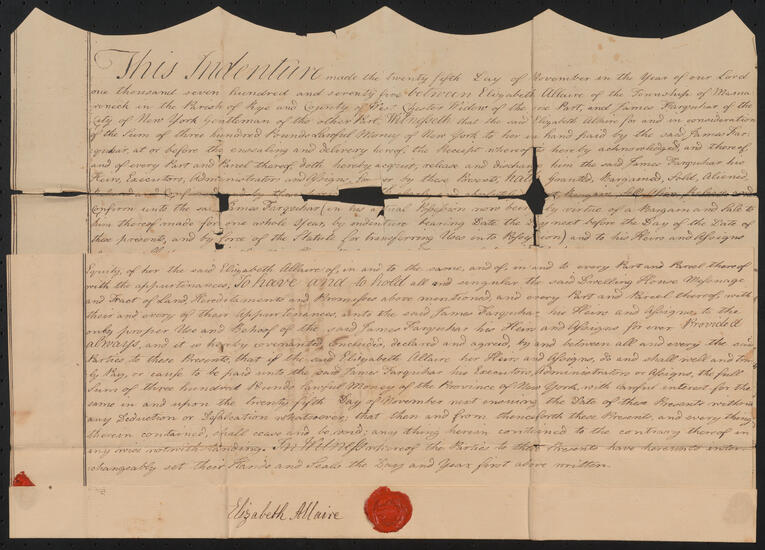 This Indenture made the twenty fifth Day of November in the Year of our Lord
one thousand seven hundred and seventy five between Elizabeth Allaire of the Township of Mama
roneck in the Parish of Rye and County of West Chester Widow of the one Part, and James Farquhar of the
City of New York Gentleman of the other Part, Witnesseth that the said Elizabeth Allaire for and in consideration
of the Sum of three hundred Pounds Lawful Money of New York to her in hand paid by the said James Far-
quhar, at or before the ensealing and delivery hereof, the Receipt whereof is hereby acknowledged, and thereof,
and of every Part and Parcel thereof, doth hereby acquit, release and discharge him the said James Farquhar his
Heirs, Executors, Administrators and Assigns, for ever by these Presents, Hath granted, Bargained, Sold, Aliened
Confirm unto the said James Farquhar (in his actual Possession now being by virtue of a Bargain and Sale to
him thereof made for one whole Year, by indenture bearing Date the Day next before the Day of the Date of
these presents, and by force of the Statute for transferring Uses into Possession) and to his Heirs and Assigns
Equity, of her the said Elizabeth Allaire of, in and to the same, and of, in and to every Part and Parcel thereof
with the appurtenances, To have and to hold all and singular the said Dwelling House Messuage
and Tract of Land, Hereditaments and Premisses above mentioned, and every Part and Parcel thereof, with
their and every of their appurtenances, unto the said James Farquhar his Heirs and Assigns, to the
only proper Use and Behoof of the said James Farquhar his Heirs and Assigns for ever Provided
always, and it is hereby covenanted, concluded, declared and agreed by and between all and every the said
Parties to these Presents, that if the said Elizabeth Allaire her Heirs and Assigns, do and shall well and tru-
ly Pay, or cause to be paid unto the said James Farquhar his Executors, Administrators or Assigns, the full
Sum of three hundred Pounds Lawful Money of the Province of New York, with lawful interest for the
same in and upon the twenty fifth Day of November next ensuing the Date of these Presents without
any Deduction or Defalcation whatsoever, that then and from thenceforth these Presents, and every thing
therein contained, shall cease and be void; any thing herein contained to the contrary thereof in
any wise notwithstanding. In Witness whereof the Parties to these Presents have hereunto inter-
changeably set their Hands and Seals the Day and Year first above written.
Elizabeth Allaire